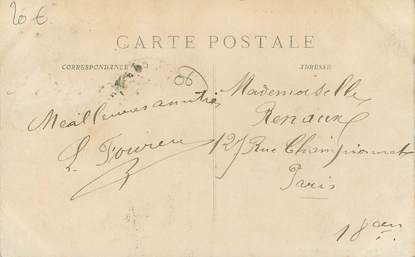 20 €
CARTE POSTALE
CORRESPONDANCE
ADRESSE
06
Meilleures amitiés
L. Fourreu
Mademoiselle
Renaux
127 Rue Championnet
Paris
18 em